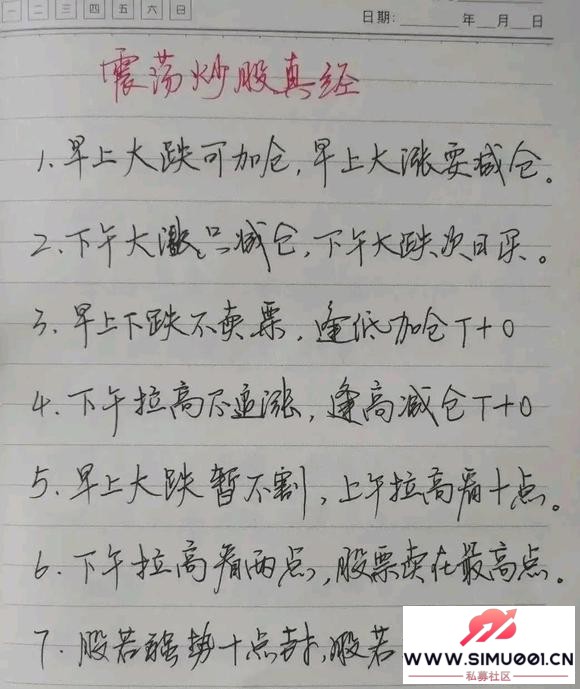 一 二 三 四 五 六 日
日期: 年 月 日
震荡炒股真经
1.早上大跌可加仓,早上大涨要减仓。
2.下午大涨只减仓,下午大跌次日买。
3.早上下跌不卖票,逢低加仓T+0
4.下午拉高不追涨,逢高减仓T+0
5.早上大跌暂不割,上午拉高看十点。
6.下午拉高看两点,股票卖在最高点。
7.股若强势十点封,股若
WWW.SIMU001.CN
私募社区